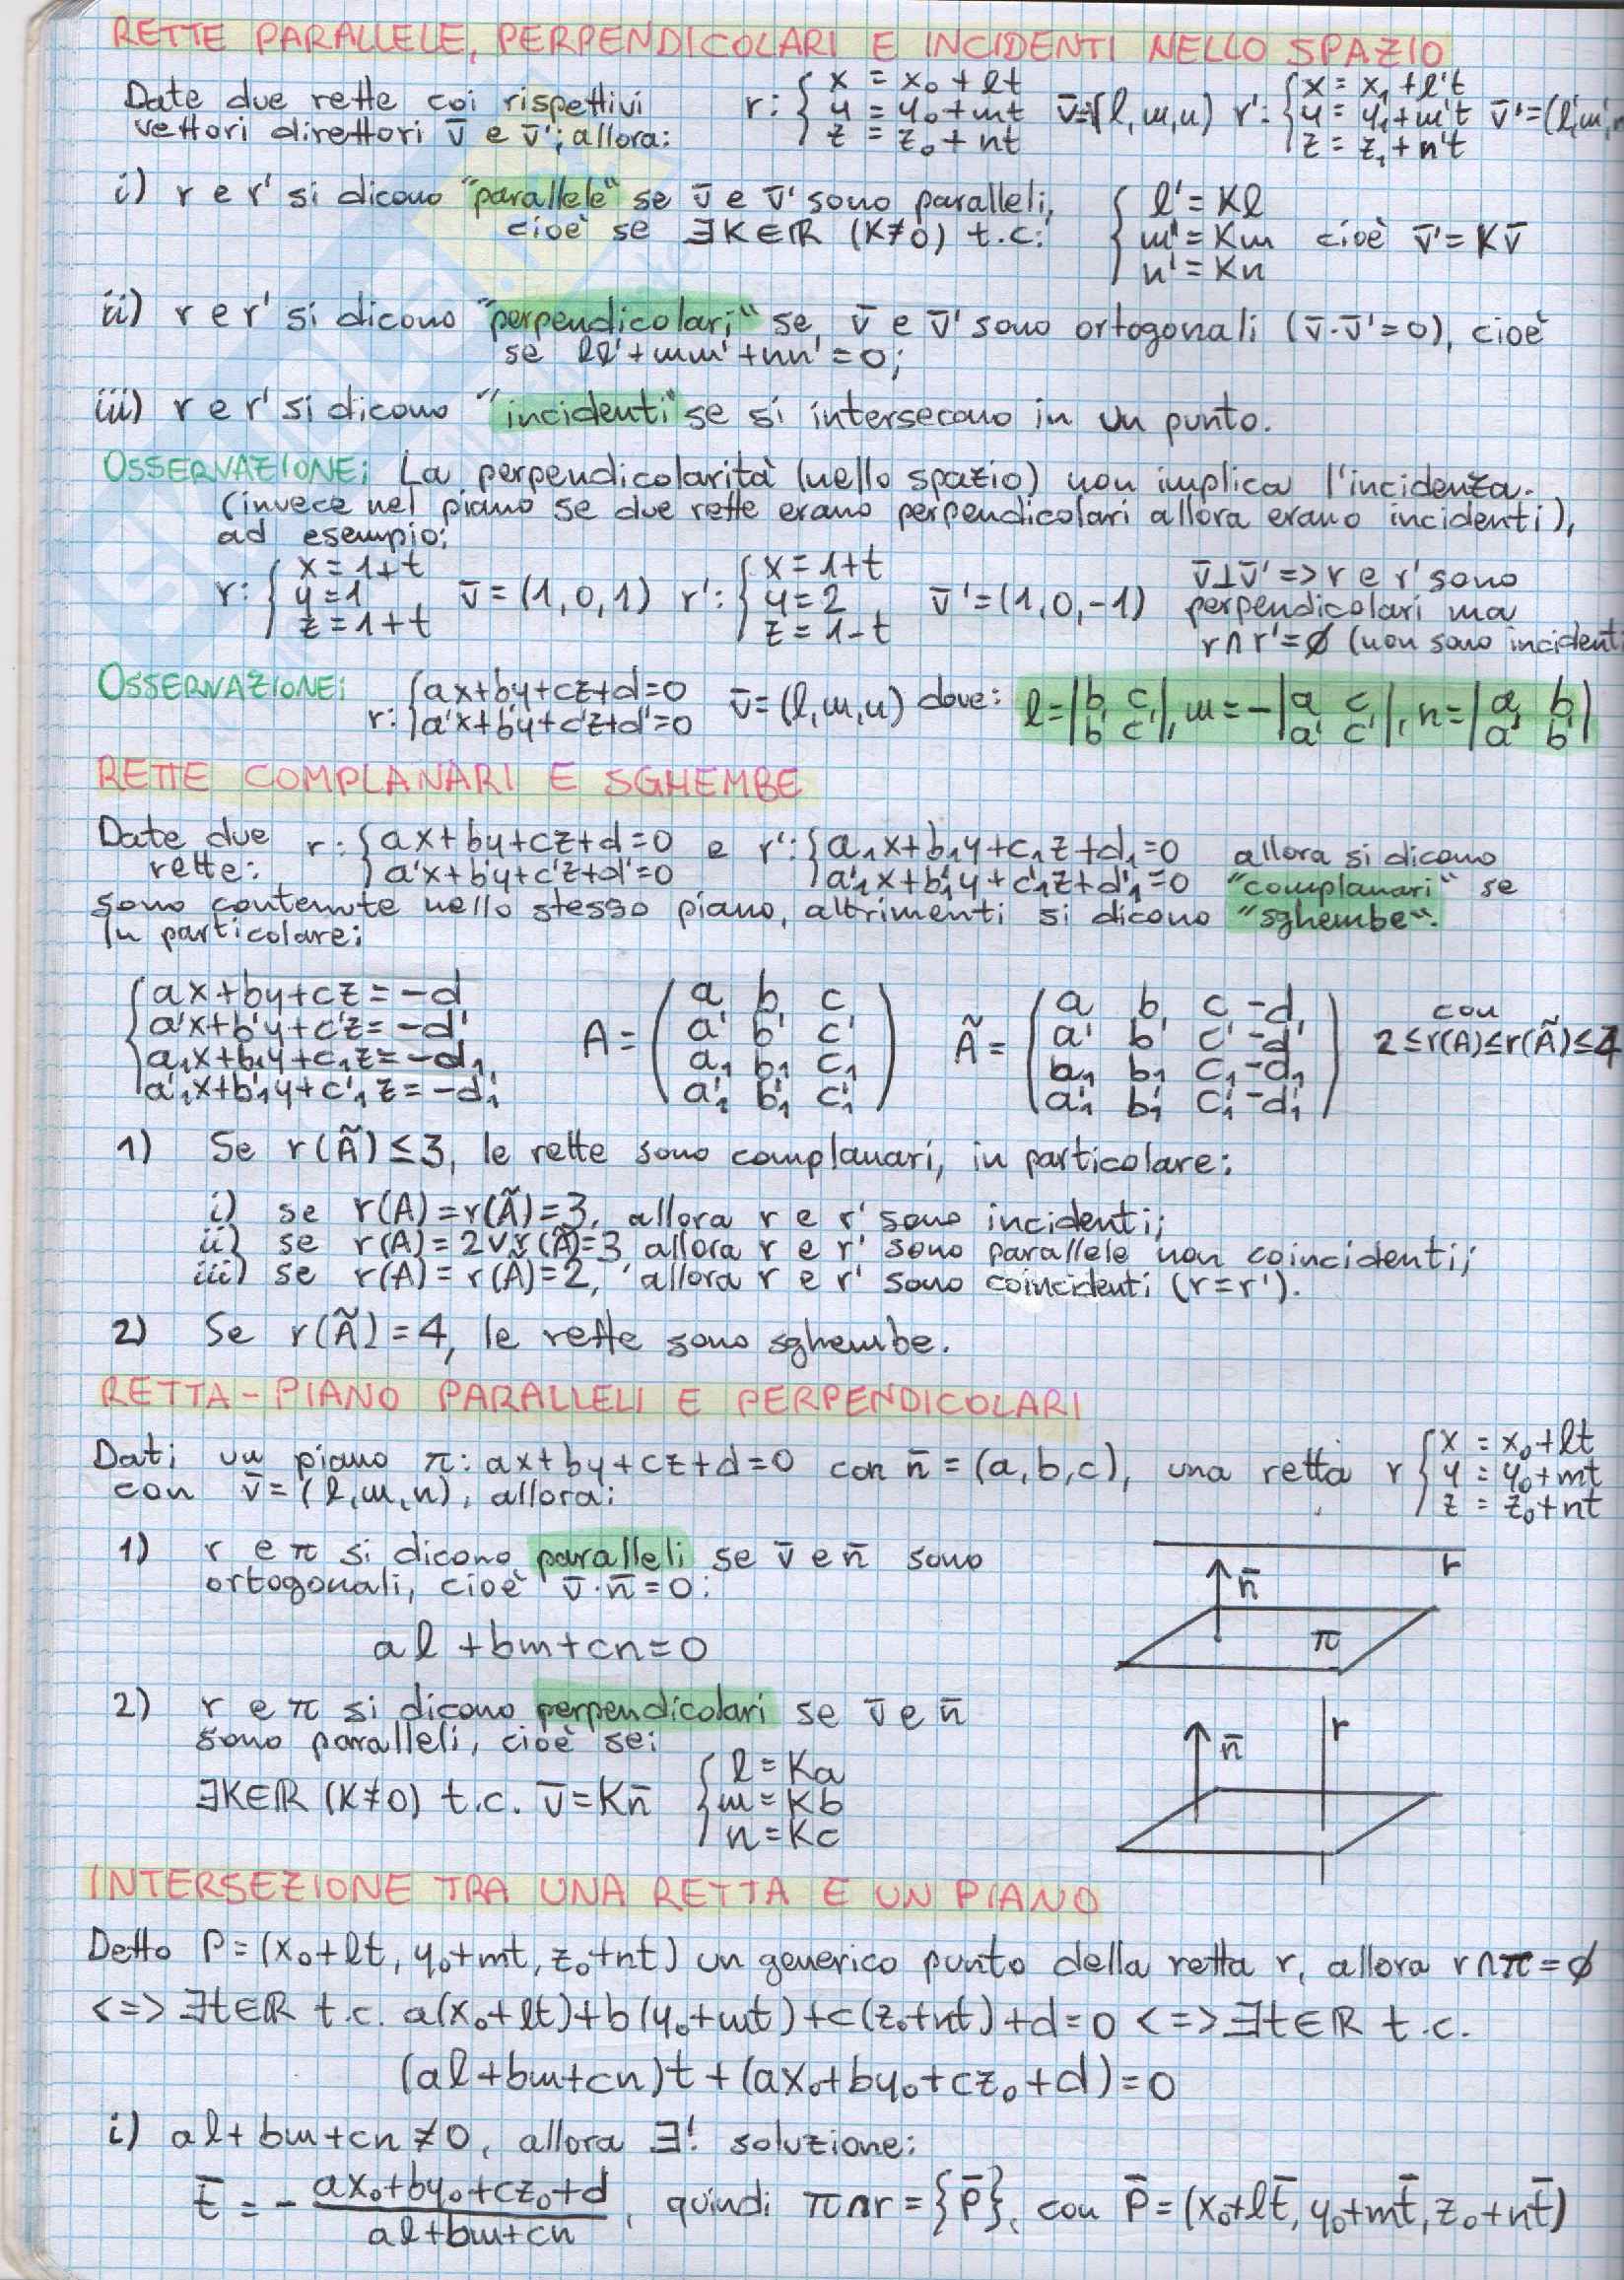 RETTE PARALLELE, PERPENDICOLARI E INCIDENTI NELLO SPAZIO
Date due rette coi rispettivi vettori direttori v̄ e v̄'; allora: r: { x = x₀+lt y = y₀+mt z = z₀+nt v̄=(l,m,n) r': { x = x₁+l't y = y₁+m't z = z₁+n't v̄'=(l',m',
i) r e r' si dicono "parallele" se v̄ e v̄' sono paralleli, { l' = Kl
cioè se ∃K∈ℝ (K≠0) t.c: m' = Km cioè v̄' = Kv̄
n' = Kn
ii) r e r' si dicono "perpendicolari" se v̄ e v̄' sono ortogonali (v̄·v̄'=0), cioè
se ll'+mm'+nn'=0;
iii) r e r' si dicono "incidenti" se si intersecano in un punto.
OSSERVAZIONE: La perpendicolarità (nello spazio) non implica l'incidenza.
(invece nel piano se due rette erano perpendicolari allora erano incidenti),
ad esempio:
r: { x = 1+t y = 1 z = 1+t v̄ = (1,0,1) r': { x = 1+t y = 2 z = 1-t , v̄' = (1,0,-1) v̄⊥v̄' => r e r' sono
perpendicolari ma
r∩r'=∅ (non sono incidenti
OSSERVAZIONE: r: { ax+by+cz+d=0 a'x+b'y+c'z+d'=0 v̄=(l,m,n) dove: l=|b c b' c'|, m=-|a c a' c'|, n=|a b a' b'|
RETTE COMPLANARI E SGHEMBE
Date due rette: r: { ax+by+cz+d=0 a'x+b'y+c'z+d'=0 e r': { a₁x+b₁y+c₁z+d₁=0 a'₁x+b'₁y+c'₁z+d'₁=0 allora si dicono
"complanari" se
sono contenute nello stesso piano, altrimenti si dicono "sghembe".
In particolare:
{ ax+by+cz=-d a'x+b'y+c'z=-d' a₁x+b₁y+c₁z=-d₁ a'₁x+b'₁y+c'₁z=-d'₁ A = ( a b c a' b' c' a₁ b₁ c₁ a'₁ b'₁ c'₁ ) Ã = ( a b c -d a' b' c' -d' a₁ b₁ c₁ -d₁ a'₁ b'₁ c'₁ -d'₁ ) con
2≤r(A)≤r(Ã)≤4
1) Se r(Ã)≤3, le rette sono complanari, in particolare:
i) se r(A)=r(Ã)=3, allora r e r' sono incidenti;
ii) se r(A)=2∨r(Ã)=3 allora r e r' sono parallele non coincidenti;
iii) se r(A)=r(Ã)=2, allora r e r' sono coincidenti (r=r').
2) Se r(Ã)=4, le rette sono sghembe.
RETTA-PIANO PARALLELI E PERPENDICOLARI
Dati un piano π: ax+by+cz+d=0 con n̄=(a,b,c), una retta r { x = x₀+lt y = y₀+mt z = z₀+nt
con v̄=(l,m,n), allora:
1) r e π si dicono paralleli se v̄ e n̄ sono
ortogonali, cioè v̄·n̄=0:
al+bm+cn=0
r
n̄
π
2) r e π si dicono perpendicolari se v̄ e n̄
sono paralleli, cioè se:
∃K∈ℝ (K≠0) t.c. v̄=Kn̄ { l=Ka m=Kb n=Kc
r
n̄
INTERSEZIONE TRA UNA RETTA E UN PIANO
Detto P=(x₀+lt, y₀+mt, z₀+nt) un generico punto della retta r, allora r∩π=∅
<=> ∃t∈ℝ t.c. a(x₀+lt)+b(y₀+mt)+c(z₀+nt)+d=0 <=> ∃t∈ℝ t.c.
(al+bm+cn)t+(ax₀+by₀+cz₀+d)=0
i) al+bm+cn≠0, allora ∃! soluzione:
t̄ = - (ax₀+by₀+cz₀+d)/(al+bm+cn), quindi π∩r={P̄}, con P̄=(x₀+lt̄, y₀+mt̄, z₀+nt̄)